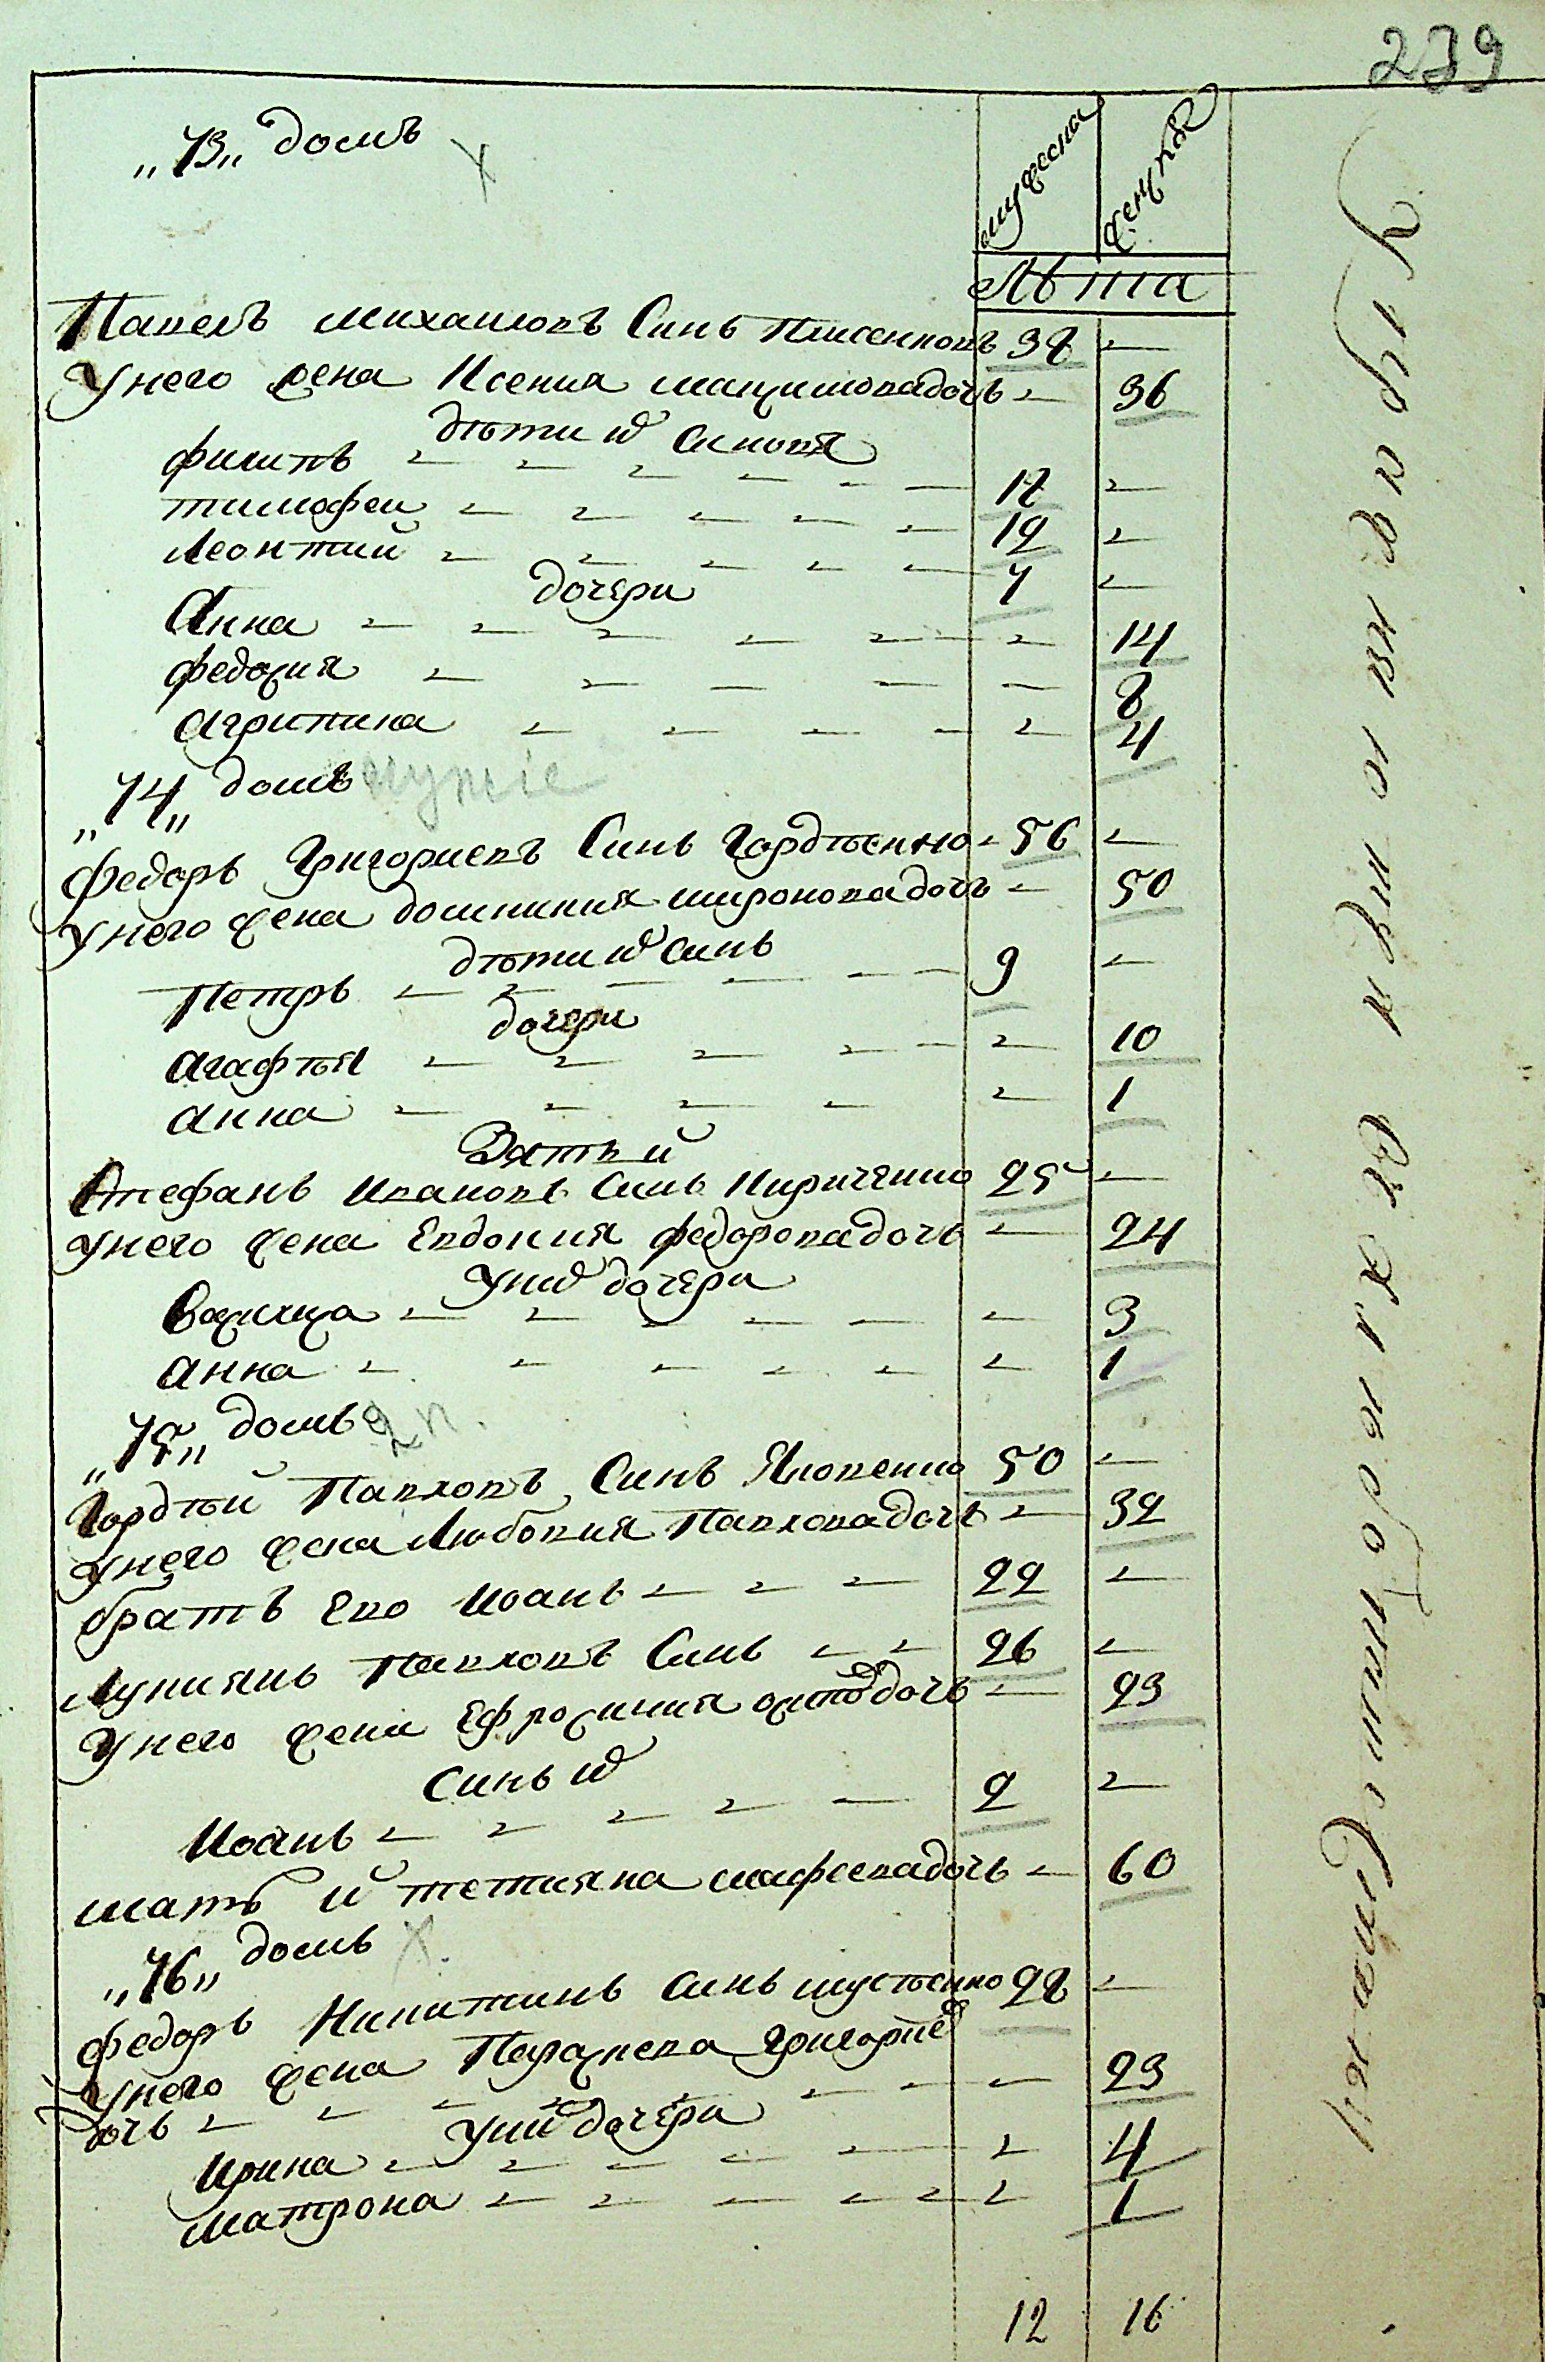 239
„73„ домъ х
мужеска
женска
Лѣта
Павелъ михаиловъ Синъ 38
Унего жена Ксения максимовадочь 36
дѣти их синовя
филипъ 18
тимофеи 12
Леонтий 7
дочери
Анна 14
федосия 8
агрипина 4
„74„ домъ
федоръ Григориевъ Синъ Гордѣенко 56
унего жена домникия мироновадочь 50
дѣти их синъ
Петръ 9
дочери
агафѣя 10
анна 1
Зятъ й
Стефанъ Ивановъ Синъ Кириченко 25
унего жена Евдокия федоровадочь 24
уних дочери
Василиса 3
анна 1
„75„ домъ 2 п.
Гордѣй Павловъ Синъ Яковенко 50
унего жена Любовия Павловадочь 32
братъ Ево Иоанъ 22
Лукиянъ Павловъ Синъ 26
унего жена Ефросиния дочь 23
Синъ их
Иоанъ 2
мать й тетияна мафеевадочь 60
„76„ домъ х.
федоръ Никитинъ Синъ шустѣенко 28
унего жена Параскева Григорие
дочь 23
уних дочери
Ирина 4
матрона 1
12 16